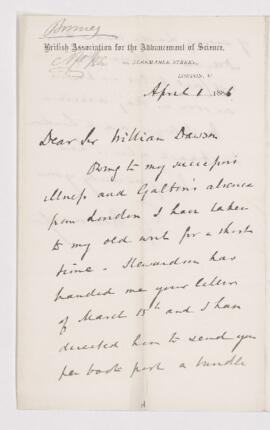 Bonney
British Association for the Advancement of Science,
22, ALBEMARLE STREET,
LONDON, W.
April 1 1886
Dear Sir William Dawson
Owing to my successor's
illness and Galton's absence
from London I have taken
to my old work for a short
time. Stewardson has
handed me your letters
of March 15th and I have
directed him to send you
per book post a bundle